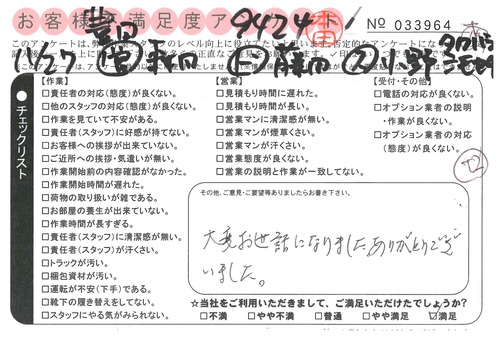 お客様満足度アンケート
9424
No 033964
【作業】
□責任者の対応(態度)が良くない。
□他のスタッフの対応(態度)が良くない。
□作業を見ていて不安がある。
□責任者(スタッフ)に好感が持てない。
□お客様への挨拶が出来ていない。
□ご近所への挨拶・気遣いが無い。
□作業開始前の内容確認がなかった。
□作業開始時間が遅れた。
□荷物の取り扱いが雑である。
□お部屋の養生が出来ていない。
□作業時間が長すぎる。
□責任者(スタッフ)に清潔感が無い。
□責任者(スタッフ)が汗くさい。
□トラックが汚い。
□梱包資材が汚い。
□運転が不安(下手)である。
□靴下の履き替えをしてない。
□スタッフにやる気がみられない。
チェックリスト
【営業】
□見積もり時間に遅れた。
□見積もり時間が長い。
□営業マンに清潔感が無い。
□営業マンが煙草くさい。
□営業マンが汗くさい。
□営業態度が良くない。
□営業の説明と作業が一致してない。
【受付・その他】
□電話の対応が良くない。
□オプション業者の説明
・作業が良くない。
□オプション業者の対応
(態度)が良くない。
その他、ご意見・ご要望等ありましたらお書き下さい。
大変お世話になりましたありがとうござ
いました。
☆当社をご利用いただきまして、ご満足いただけたでしょうか?
□不満 □やや不満 □普通 □やや満足 ☑満足